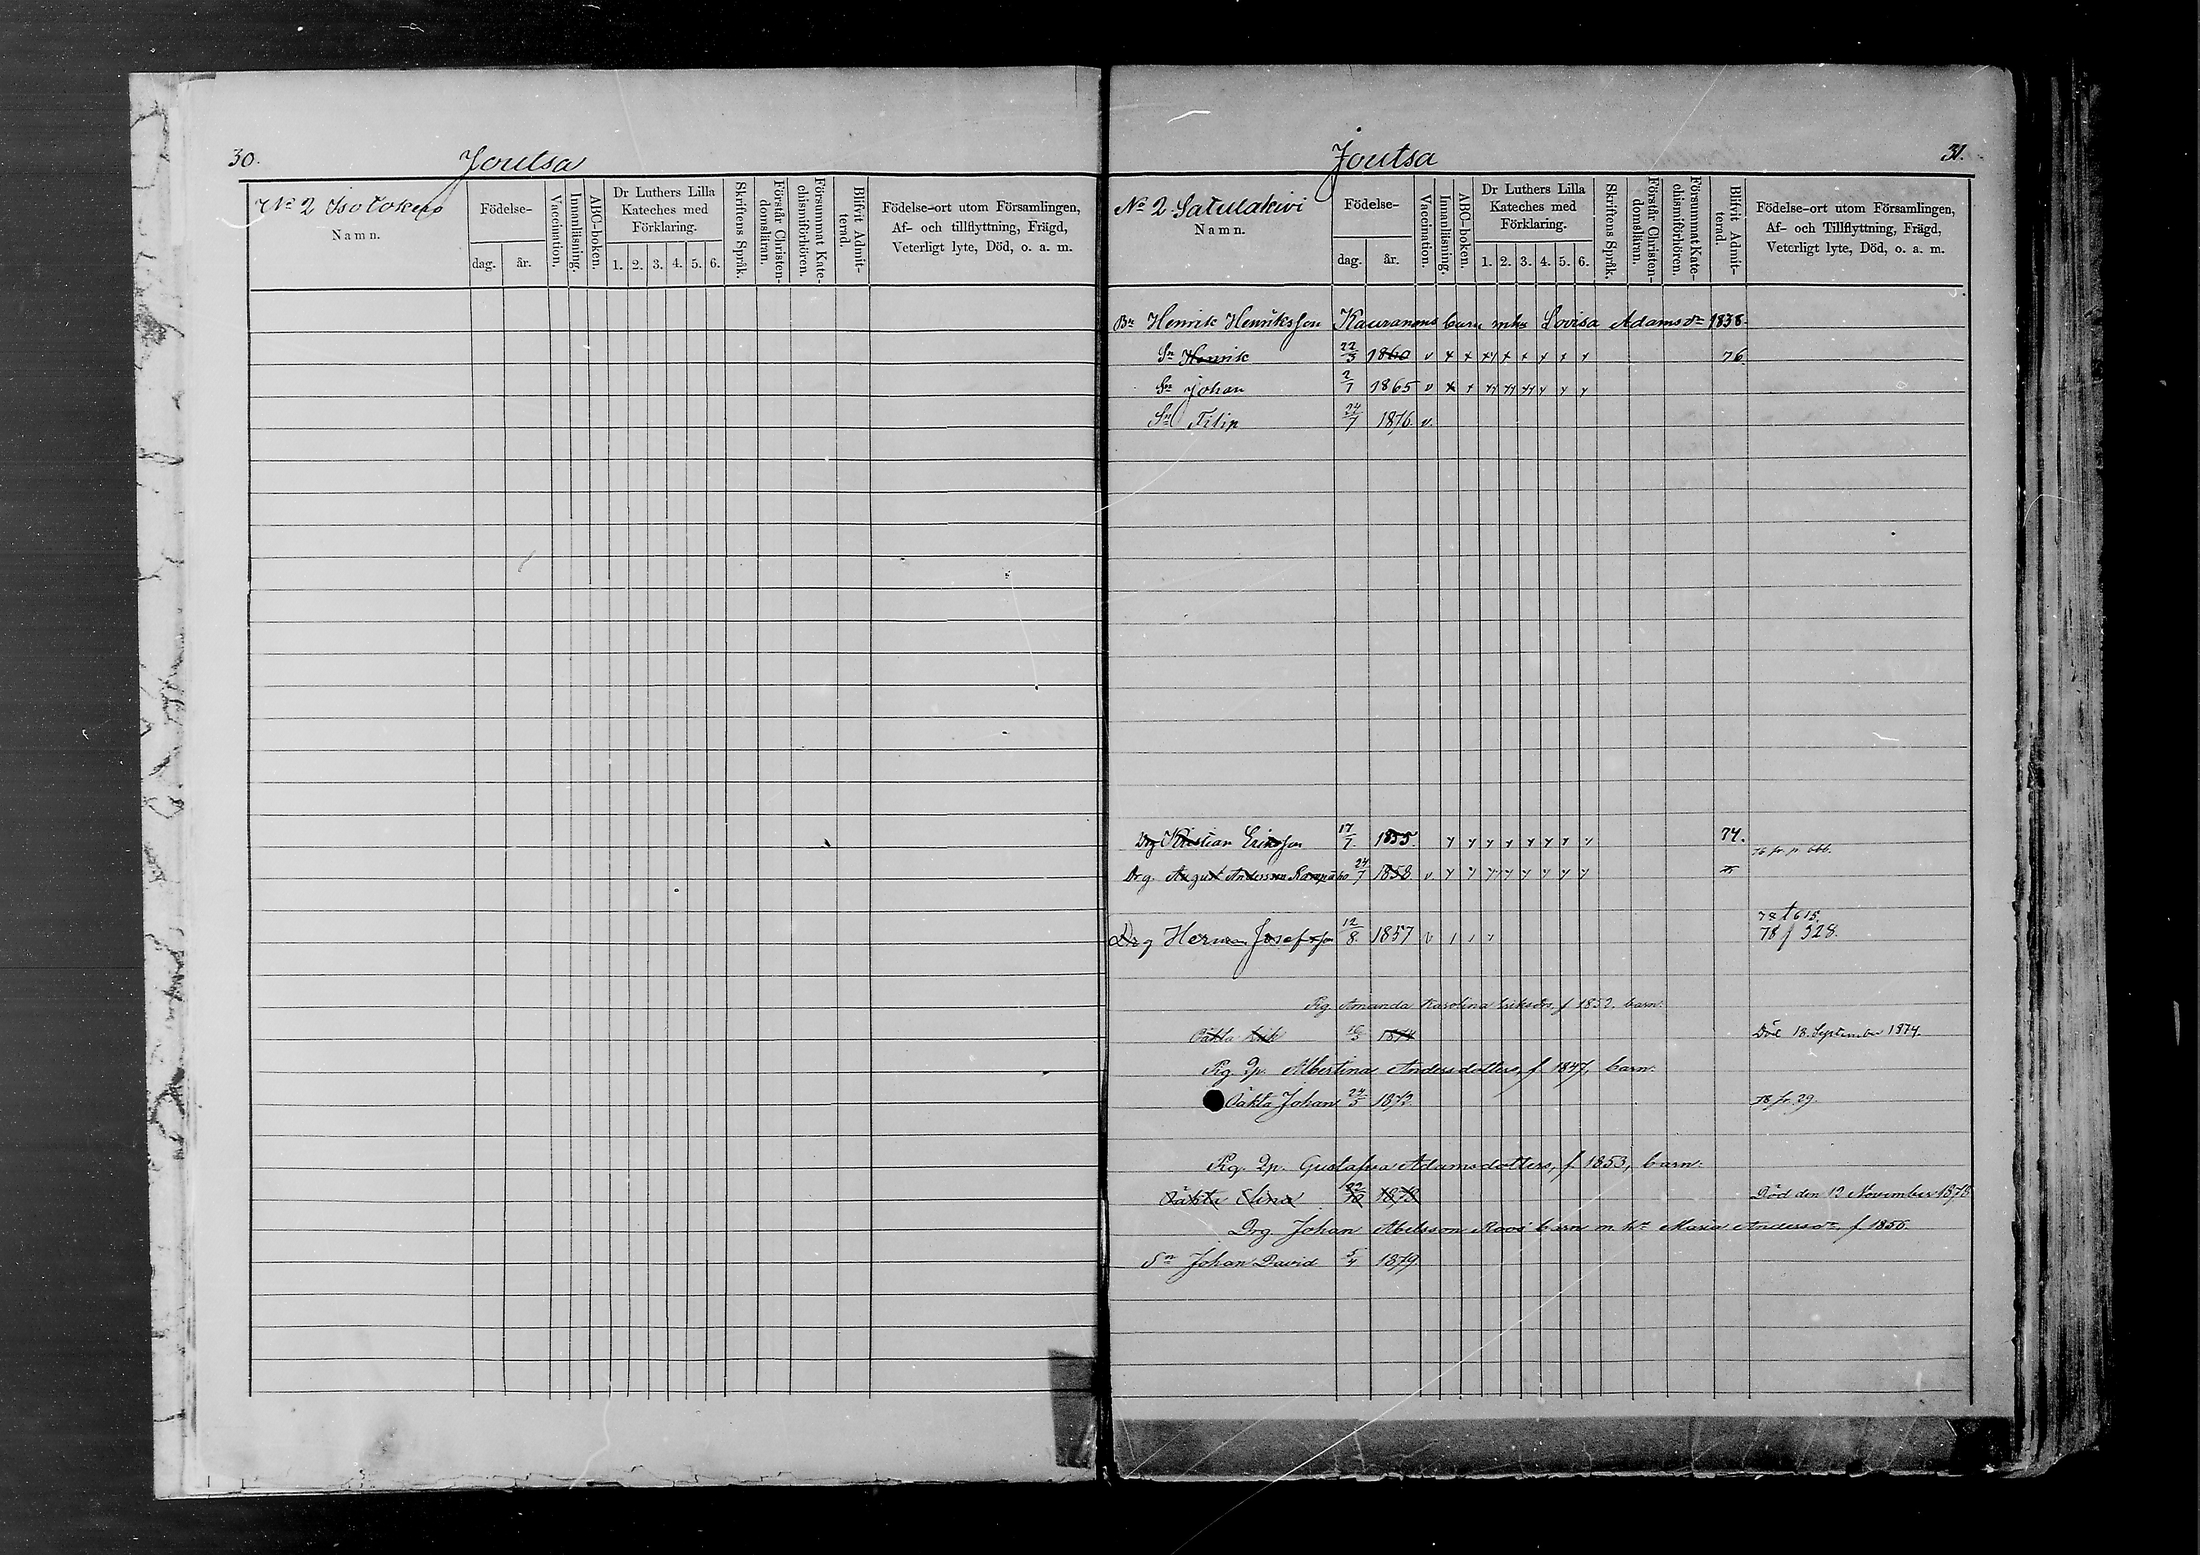 30.
Joutsa
No 2 Isotokero
Namn.
Födelse-
dag.
år.
Vaccination.
Innanläsning.
ABC-boken.
Dr Luthers Lilla
Kateches med
Förklaring.
1. 2. 3. 4. 5. 6.
Skriftens Språk.
Förstår Christen-
domsläran.
Försummat Kate-
chismiförhören.
Blifvit Admit-
terad.
Födelse-ort utom Församlingen,
Af- och tillflyttning, Frägd,
Veterligt lyte, Död, o. a. m.
Joutsa
31.
No 2 Satulakivi
Namn.
Födelse-
dag.
år.
Vaccination.
Innanläsning.
ABC-boken.
Dr Luthers Lilla
Kateches med
Förklaring.
1. 2. 3. 4. 5. 6.
Skriftens Språk.
Förstår Christen-
domsläran.
Försummat Kate-
chismiförhören.
Blifvit Admit-
terad.
Födelse-ort utom Församlingen,
Af- och Tillflyttning, Frägd,
Veterligt lyte, Död, o. a. m.
Bn Henrik Henriksson Kauranens barn mhu Lovisa Adamsdr 1838.
Sn Henrik 22/3 1860 v x x xy x x y x y 76
Sn Johan 2/7 1865 v x x yy yy yy y y y
Sn Filip 24/7 1876 v.
Drg Kristian Eriksson 17/7. 1855. y y y y y y y y 74. 76 fr. p. 661.
Drg. August Andersson 24/7 1858 v y y yy y y y y
78 t 615.
Drg Herman Josefsson 12/8. 1857 v 78 f 328.
Pig. Amanda Karolina Eriksdrs, f 1852, barn:
Oäkta Erik 1874 Död 18. September 1874.
Pig. Qp. Albertina Andersdotters, f 1847, barn:
Oäkta Johan 24/5 1872 78 fr. 29.
Pig. Qp. Gustafva Adamsdotters, f 1853, barn:
Oäkta Elina 22/10 1878 Död den 12 November 1878
Drg. Johan Abelsson Roos' barn m hu Maria Andersdr, f 1856.
Sn Johan David 5/4 1879